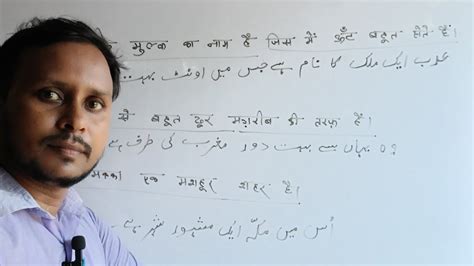 मुल्क का नाम है जिस में ऊँट बहुत होते हैं।
عرب ایک ملک کا نام ہے جس میں اونٹ بہت
से बहुत दूर मग़रीब की तरफ़ है।
وہ یہاں سے بہت دور مغرب کی طرف ہے
मक्का एक मशहूर शहर है।
اُس میں مکّہ ایک مشہور شہر ہے۔